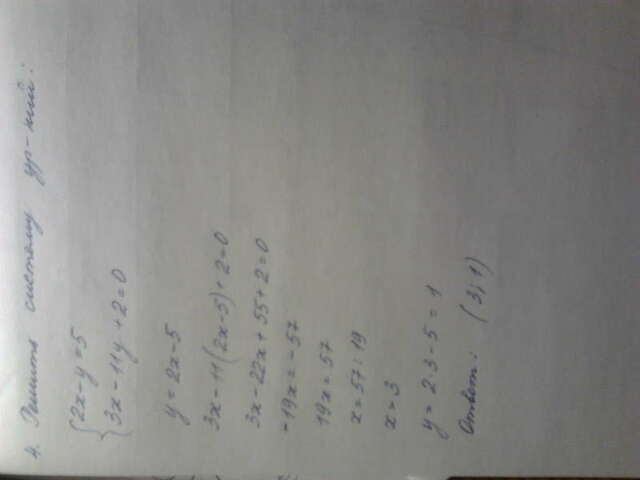 4. Решить систему ур-ний:
{2x-y=5
{3x-11y+2=0
y=2x-5
3x-11(2x-5)+2=0
3x-22x+55+2=0
-19x=-57
19x=57
x=57:19
x=3
y=2·3-5=1
Ответ: (3;1)